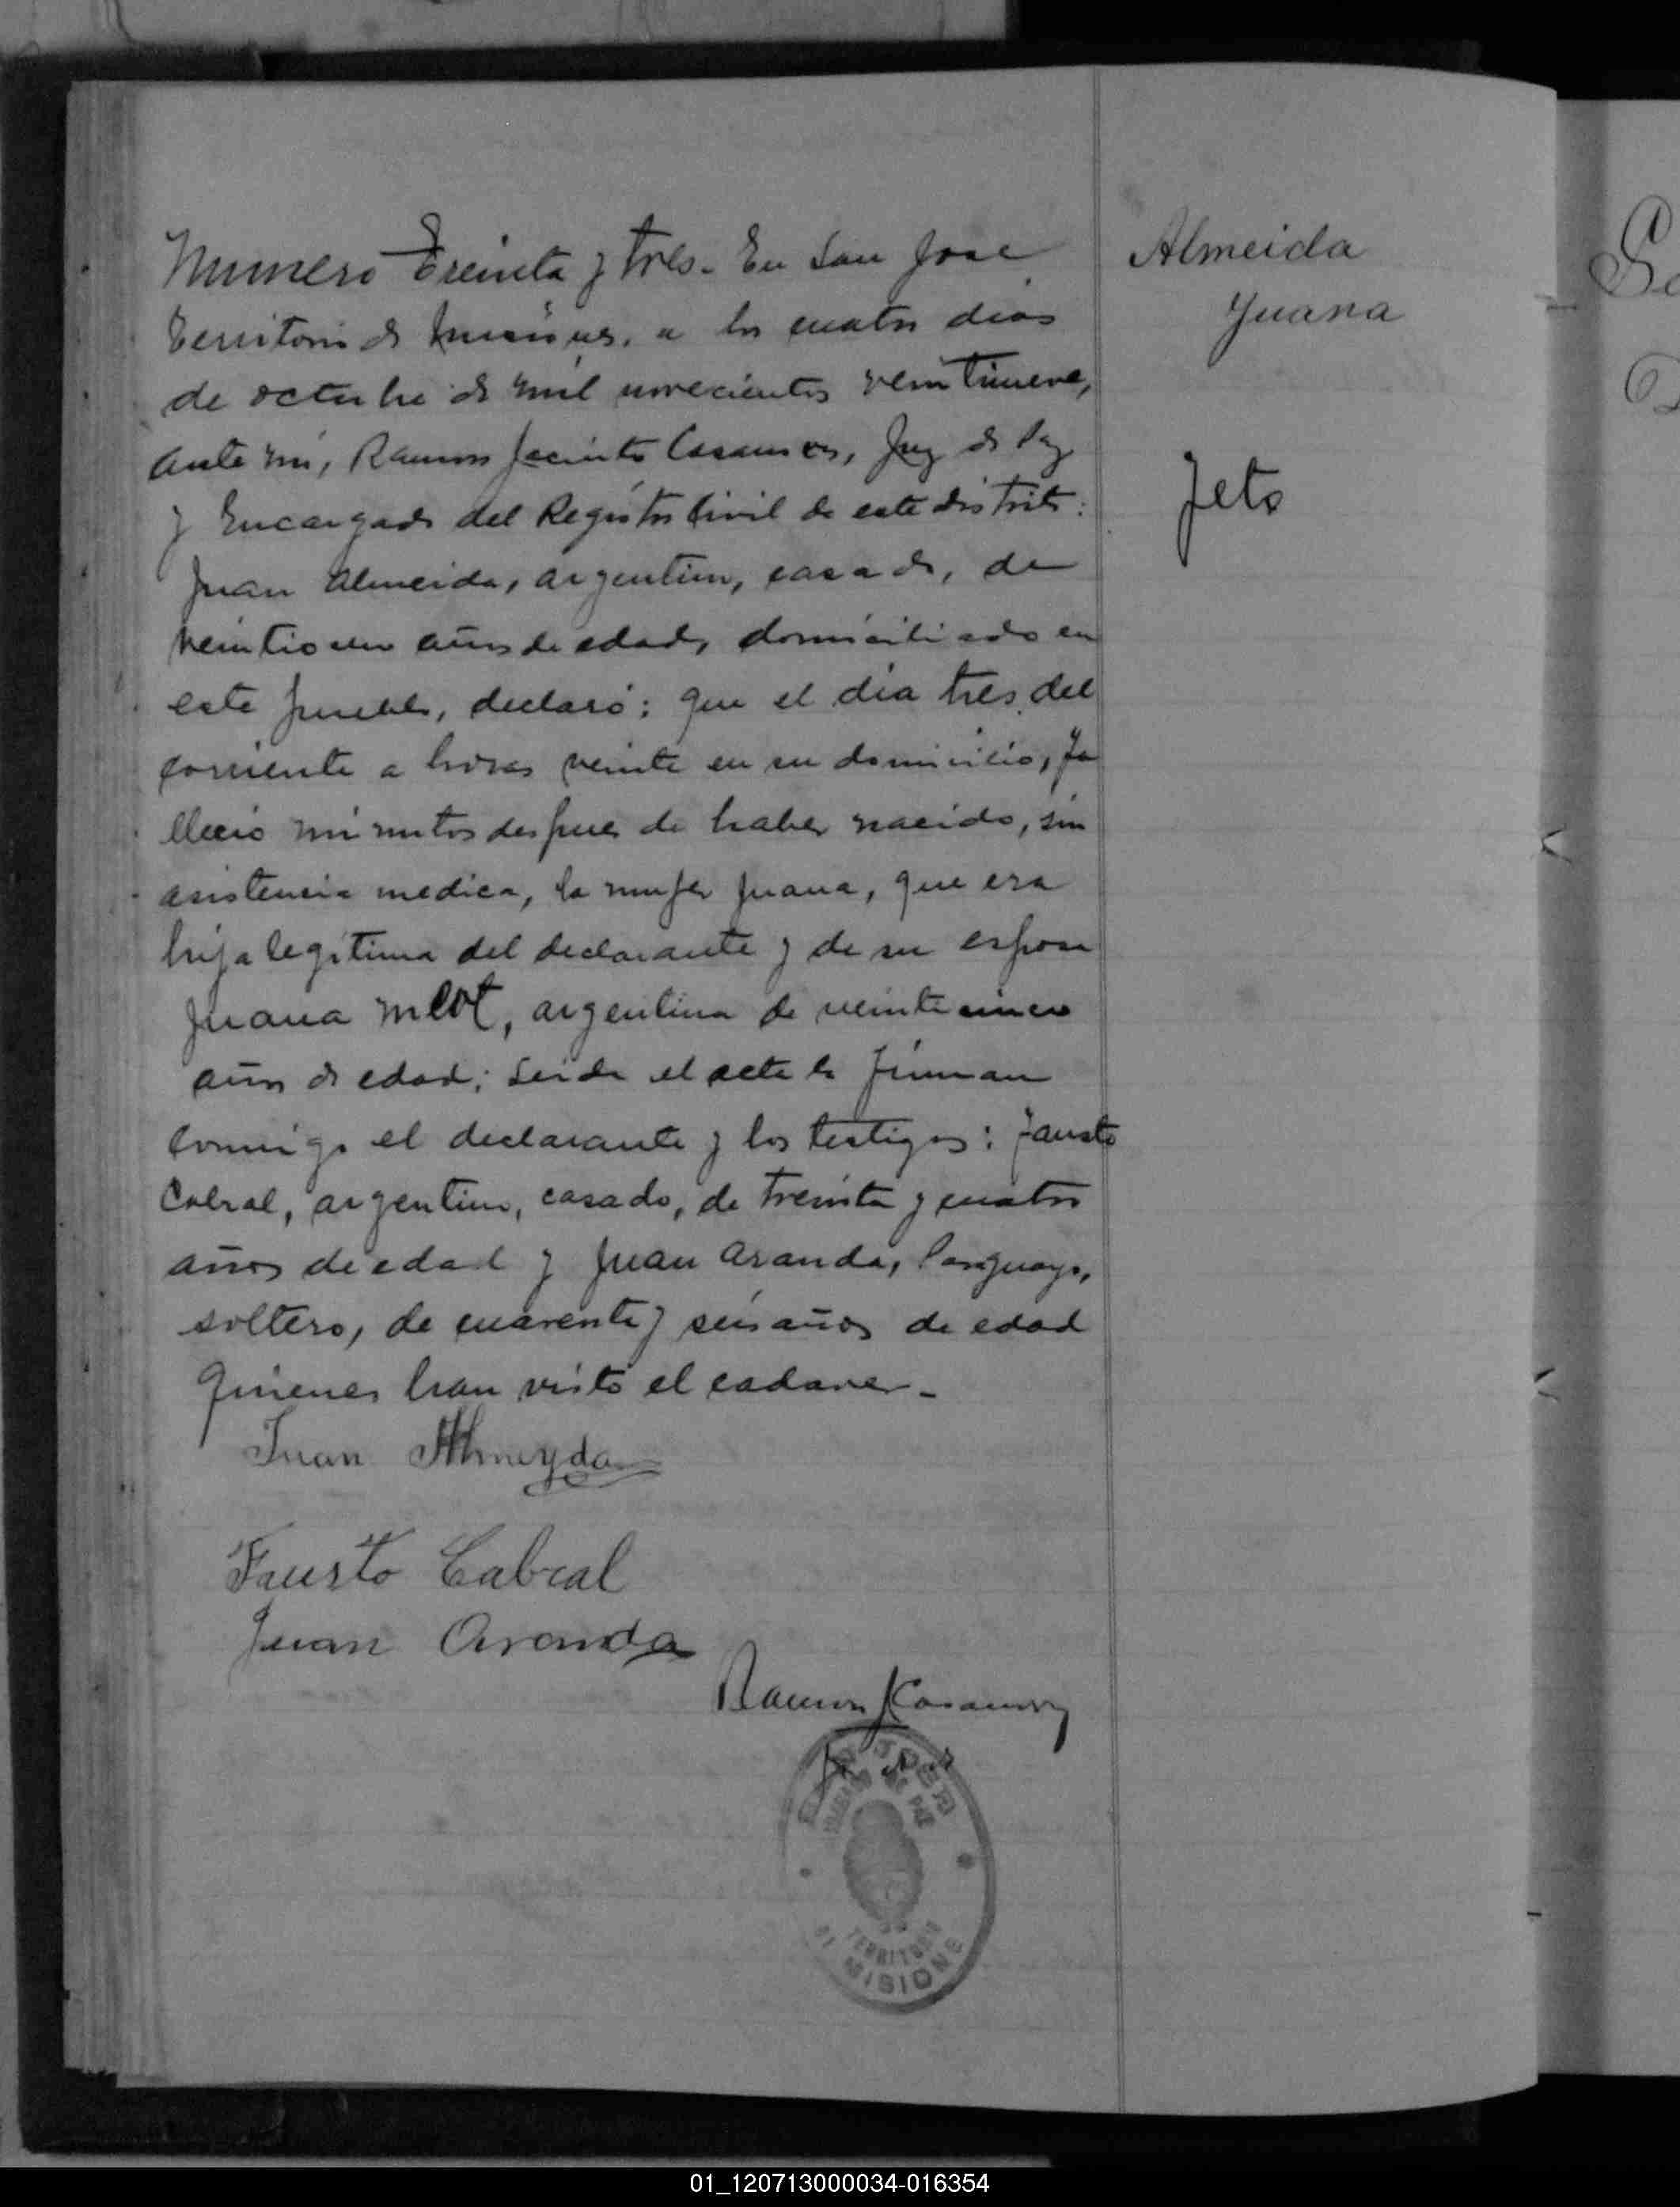 Numero Treinta y tres. En San José
Territorio de Misiones, a los cuatro dias
de octubre de mil novecientos veintinueve,
ante mi, Ramon Jacinto Casanova, Juez de Paz
y Encargado del Registro Civil de este distrito:
Juan Almeida, argentino, casado, de
años de edad, domiciliado en
este pueblo, declaró: que el dia tres del
corriente a horas veinte en su domicilio, fa
llecio minutos despues de haber nacido, sin
asistencia medica, la mujer Juana, que era
hija legitima del declarante y de su esposa
Juana argentina de veinticinco
años de edad; Leida el acta la firman
conmigo el declarante y los testigos: Fausto
Cabral, argentino, casado, de treinta y cuatro
años de edad y Juan Aranda, Paraguayo,
soltero, de cuarenta y seis años de edad
quienes han visto el cadaver.-
Juan Almeyda
Fausto Cabral
Juan Aranda
Ramon J Casanova
JUZGADO DE PAZ
TERRITORIO
MISIONES
Almeida
Juana
feto
01_120713000034-016354